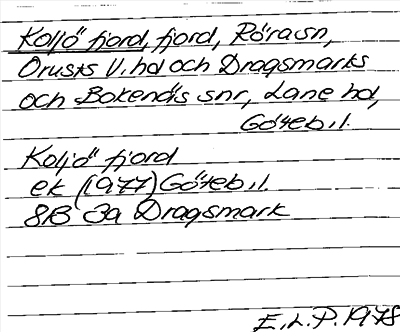 Koljö fjord, fjord, Röra sn,
Orusts V. hd och Dragsmarks
och Bokenäs snr, Lane hd,
Göteb. l.
Koljö fjord
ek (1977) Göteb. l.
8B 3a Dragsmark
E.L.P. 1978